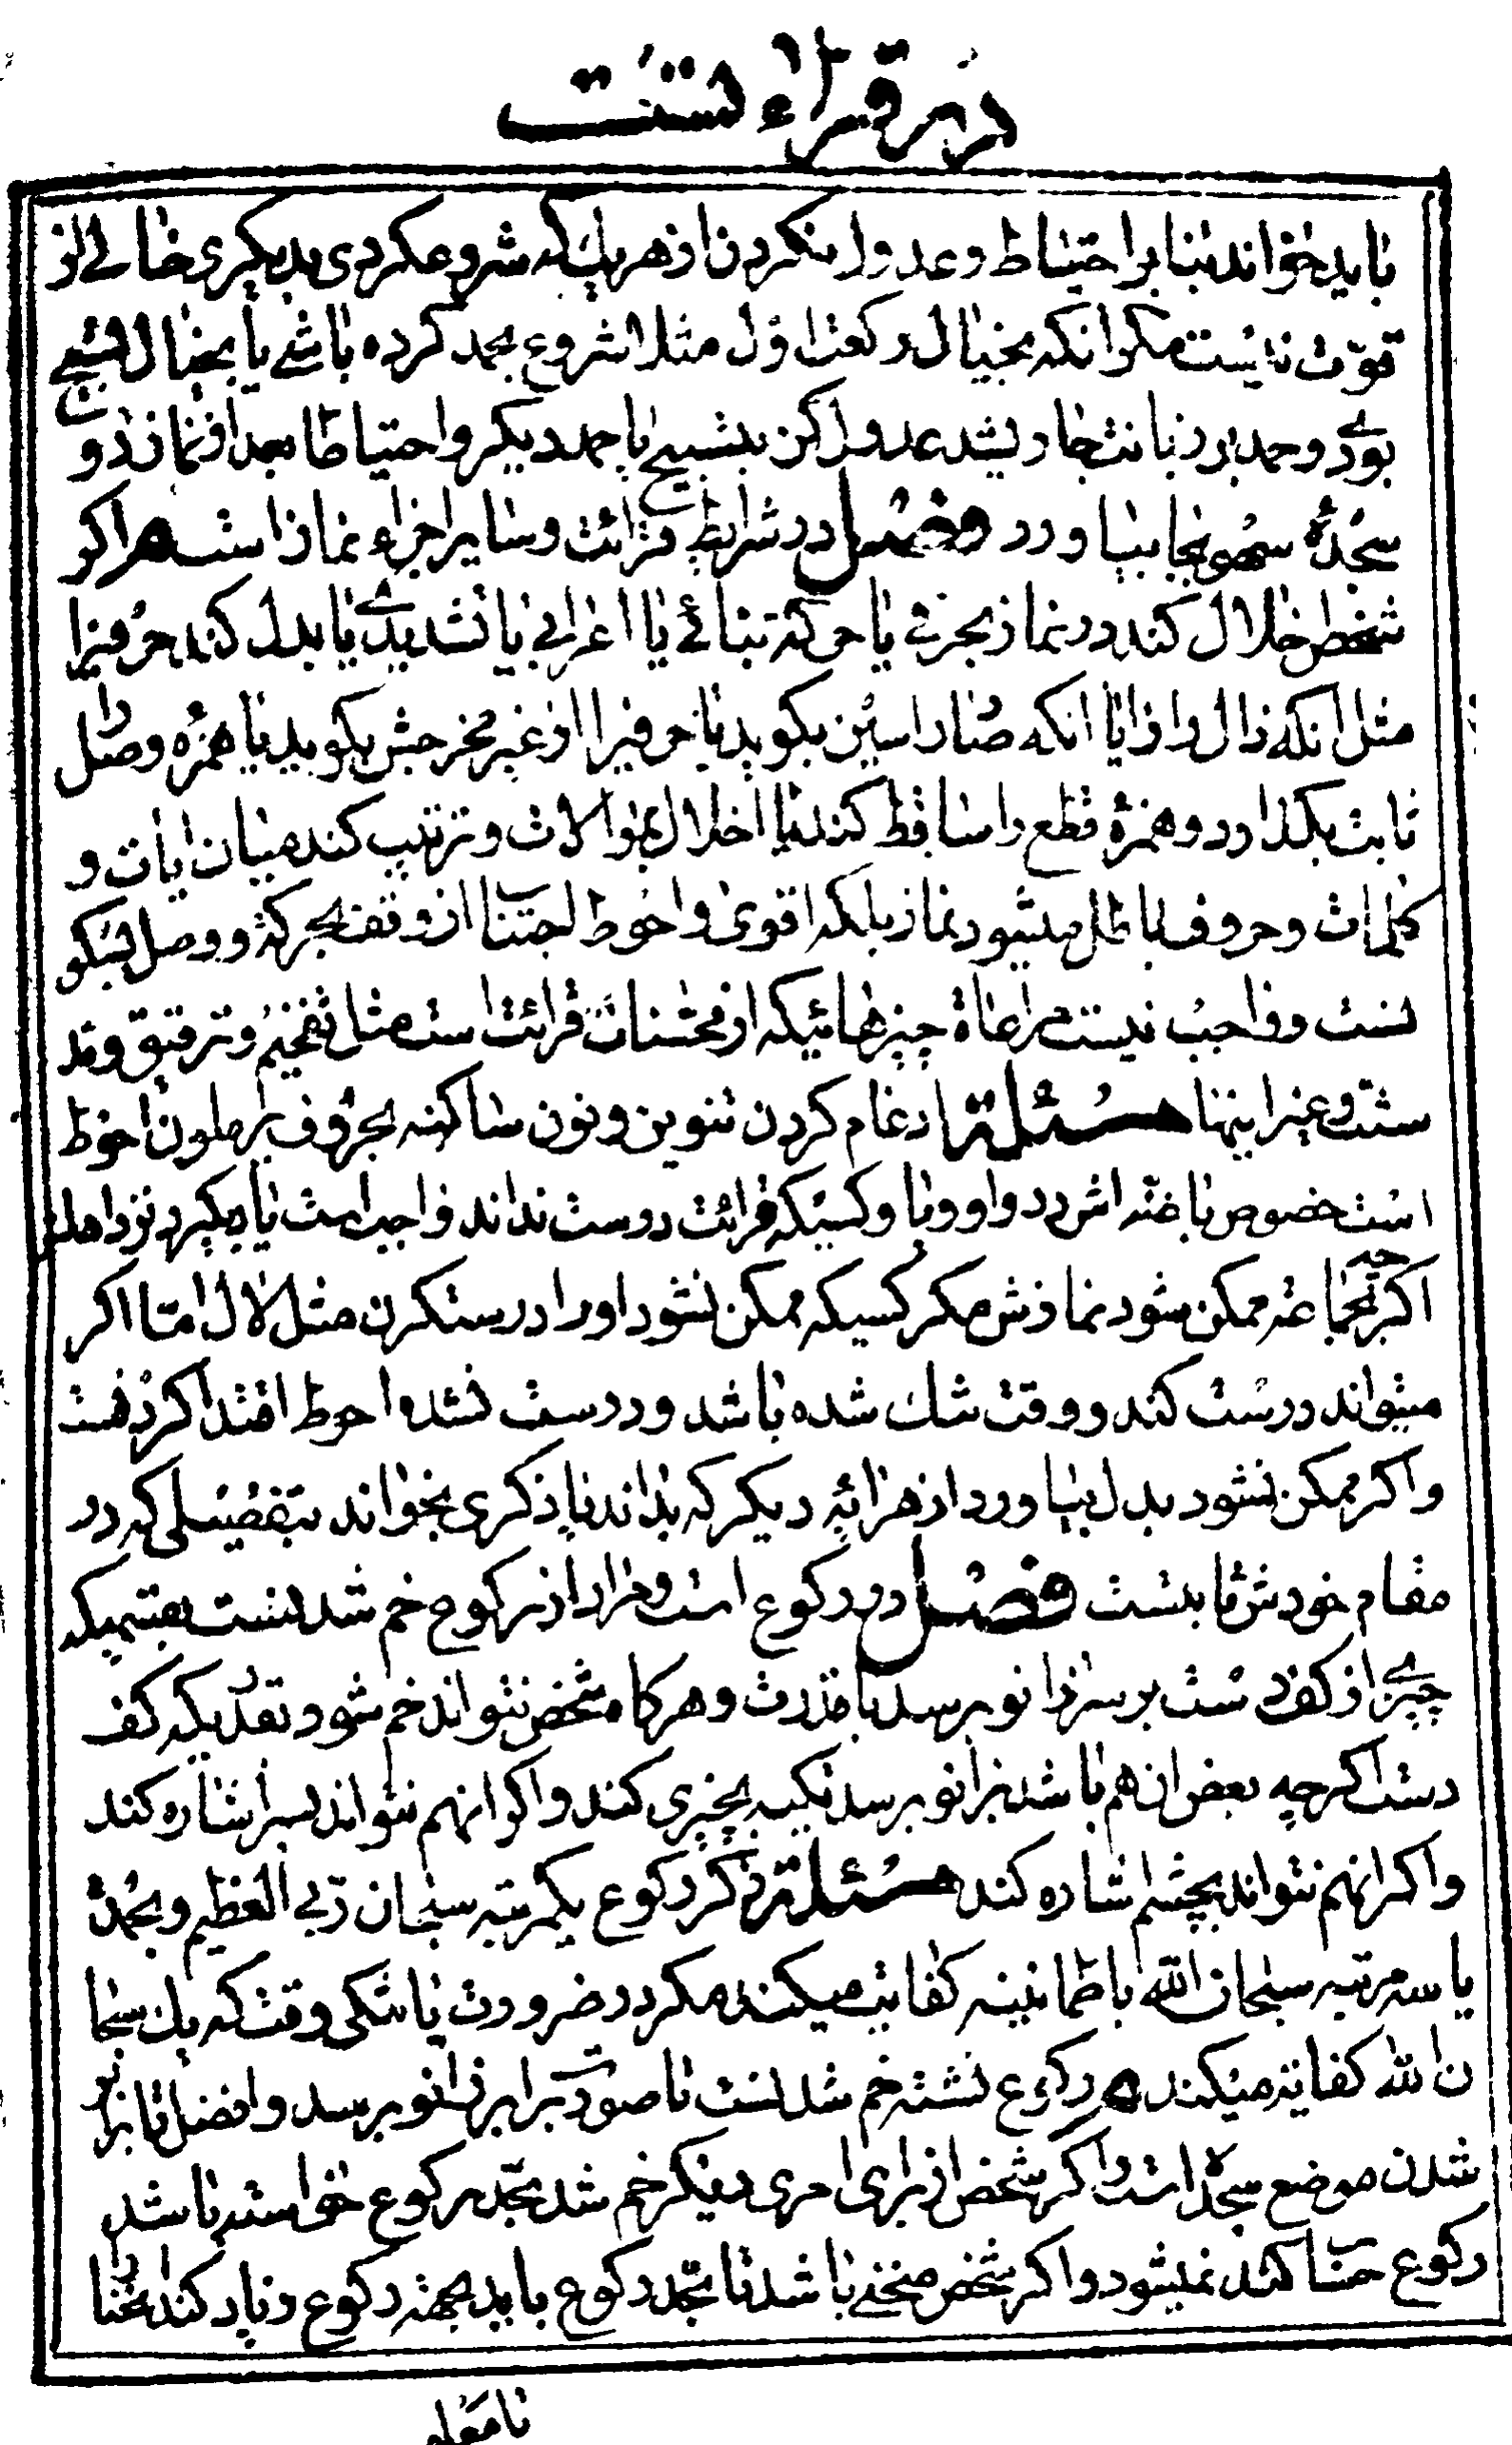 در قراءتست
باید بخواند بنا بر احتیاط و عدول نکردن از هر یک که شروع کردی بدیگری خالی از
قوّت نیست مکر انکه بخیال رکعت اوّل مثلا شروع بحمد کرده باشی یا بخیال تسبیح
بودی و حمد بر زبانت جاری شد عدول کن بتسبیح یا حمد دیکر و احتیاطا بعد از نماز دو
سجدهٔ سهو بجا بیاورد فصل در شرایط قرائت و سایر اجزاء نماز است هر اکر
شخص اخلال کند در نماز بحرفی یا حرکة بنائی یا اعرابی یا تشدیدی یا بدل کند حرفیرا
مثل انکه ذال را زا یا انکه صاد را سین بکوید یا حرفیرا از غیر مخرجش بکوید یا همزه وصل را
ثابت بکذارد و همزهٔ قطع را ساقط کند یا اخلال بموالات و ترتیب کند میان ایات و
کلمات و حروف باطل میشود نماز بلکه اقوی و احوط اجتناب از وقف بحرکة و وصل بسکو
نست و واجب نیست مراعاة چیزهائیکه از محسّنات قرائت است مثل تفخیم و ترقیق و مد
ست و غیر اینها مسئلة ادغام کردن تنوین و نون ساکنه بحروف یرملون احوط
است خصوص با غنه اش در واو و یا و کسیکه قرائت درست نداند واجب است یاد بکیرد نزد اهلش
اکر چه بجماعة ممکن شود نمازش مکر کسیکه ممکن نشود او را درست کردن مثل لال امّا اکر
میتواند درست کند و وقت تنک شده باشد و درست نشد احوط اقتدا کردنست
و اکر ممکن نشود بدل بیاورد از هر ائه دیکر که بداند یا ذکری بخواند بتفصیلی که در
مقام خودش ثابتست فصل در رکوع است و مراد از رکوع خم شدنست بقسمیکه
چیزی از کف دست بر سر زانو برسد با قدرت و هر کاه شخص نتواند خم شود بقدریکه کف
دست اکرچه بعض ان هم باشد بزانو برسد تکیه بچیزی کند و اکر انهم نتواند بسر اشاره کند
و اکر انهم نتواند بچشم اشاره کند مسئلة ذکر رکوع یکمرتبه سبحان ربی العظیم و بحمدهٔ
یا سه مرتبه سبحان الله با طمانینه کفایت میکند مکر در ضرورت یا تنکی وقت که یک سبحا
ن الله کفایة میکند و رکوع نشسته خم شدنست تا صورت برابر زانو برسد و افضل تا برابر
شدن موضع سجده است و اکر شخص از برای امری دیکر خم شد بحد رکوع خواسته باشد
رکوع حساب کند نمیشود و اکر شخص منحنی باشد تا بحد رکوع باید بجهة رکوع زیاد کند انحنا را
تا معلو